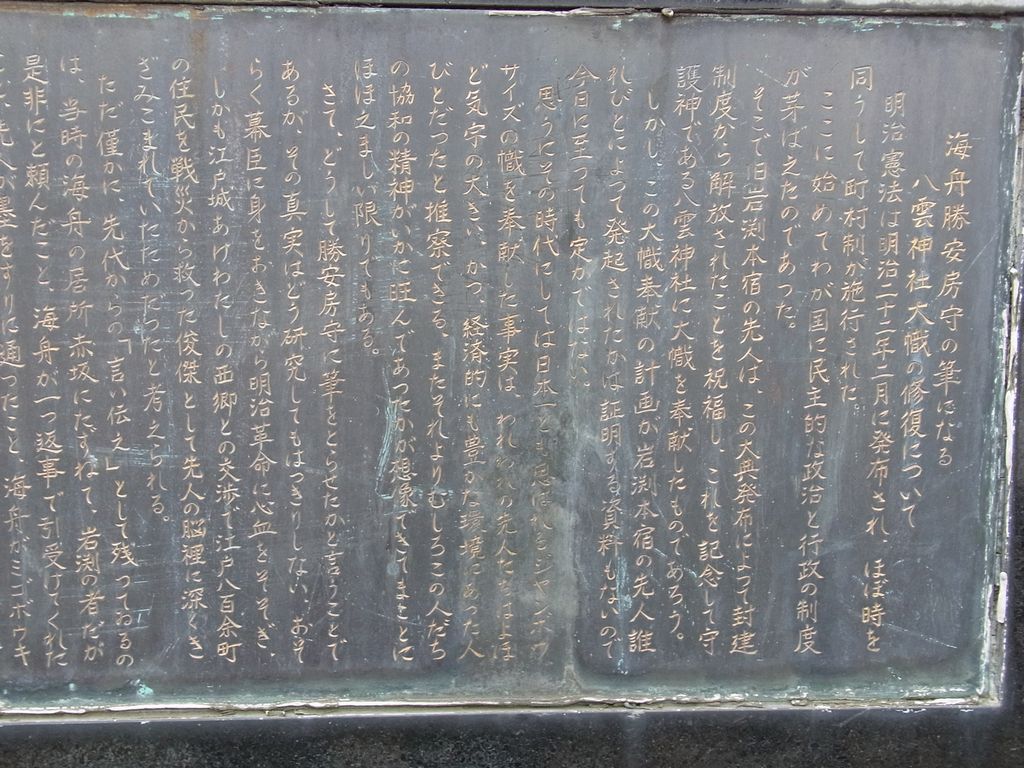 海舟勝安房守の筆になる
八雲神社大幟の修復について
明治憲法は明治二十二年二月に発布され、ほぼ時を
同うして町村制が施行された。
ここに始めてわが国に民主的な政治と行政の制度
が芽ばえたのであった。
そこで旧岩渕本宿の先人は、この大典発布によって封建
制度から解放されたことを祝福し、これを記念して守
護神である八雲神社に大幟を奉献したものであろう。
しかし、この大幟奉献の計画が岩渕本宿の先人誰
れびとによって発起されたかは証明する資料もないので
今日に至っても定かではない。
思うにその時代にしては日本一とも思はれるジャンボウ
サイズの幟を奉献した事実は、われわれの先人たちはよほ
ど気宇の大きい、かつ、経済的にも豊かな環境にあった人
びとだったと推察できる。またそれよりむしろこの人だち
の協和の精神がいかに旺んであったかが想像できてまことに
ほほえましい限りでもある。
さて、どうして勝安房守に筆をとらせたかと言うことで
あるが、その真実はどう研究してもはっきりしない、おそ
らく幕臣に身をおきながら明治革命に心血をそそぎ、
しかも江戸城あけわたしの西郷との交渉で江戸八百余町
の住民を戦災から救った俊傑として先人の脳裡に深くき
ざみこまれていたためだったと考えられる。
ただ僅かに、先代からの「言い伝え」として残ってゐるの
は、当時の海舟の居所赤坂にたずねて、岩渕の者だが
是非にと頼んだこと、海舟が一つ返事で引受けてくれた
こと、先人が墨をすりに通ったこと、海舟がミゴボウキ